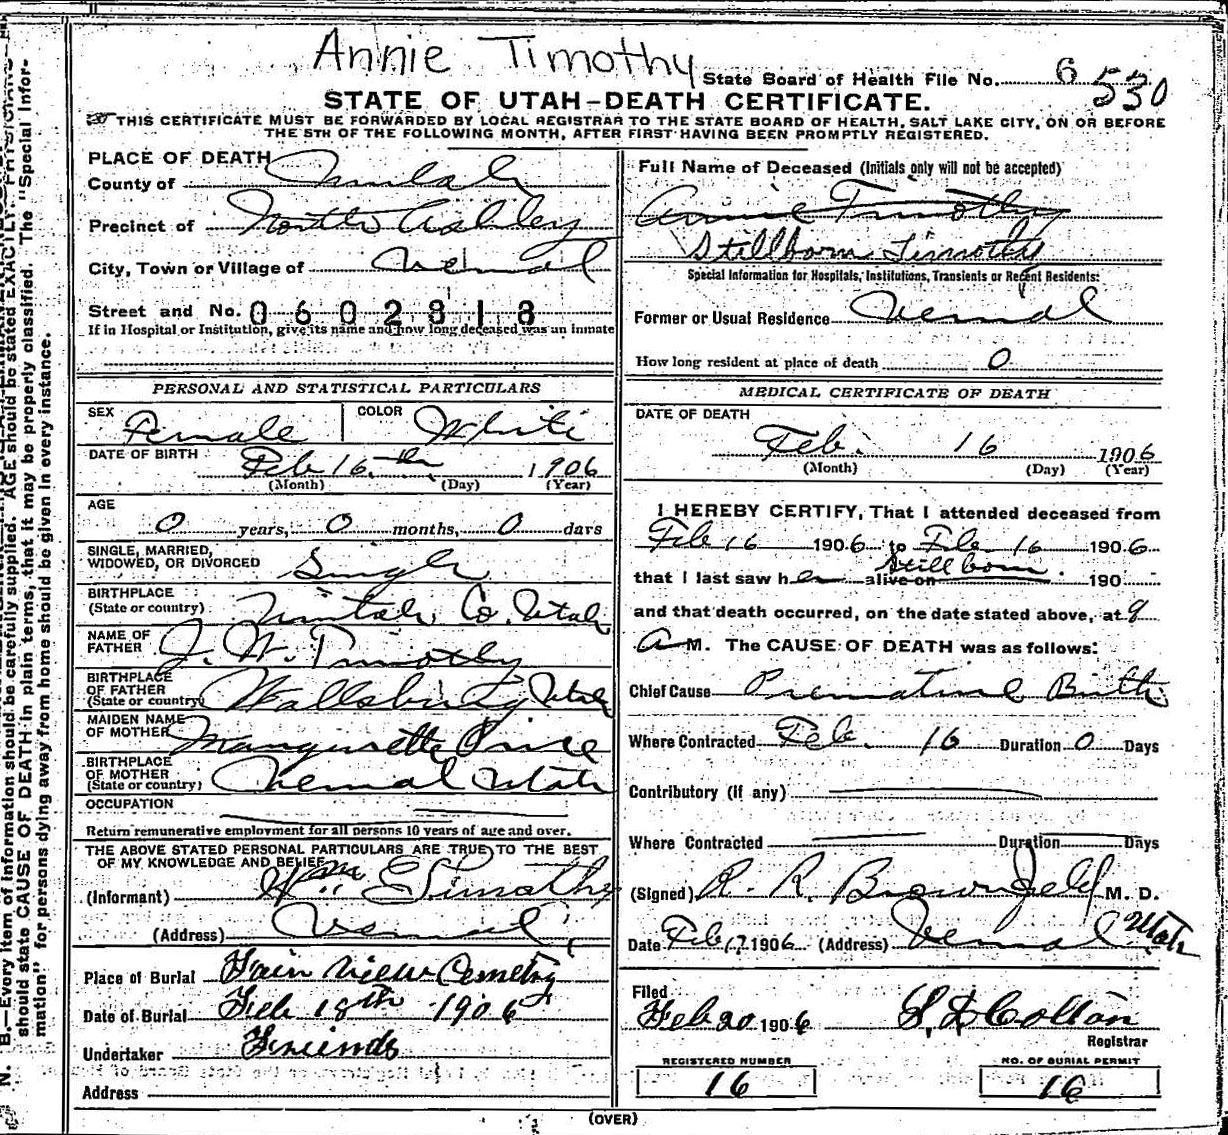 Annie Timothy
State Board of Health File No. 6 530
STATE OF UTAH-DEATH CERTIFICATE.
THIS CERTIFICATE MUST BE FORWARDED BY LOCAL REGISTRAR TO THE STATE BOARD OF HEALTH, SALT LAKE CITY, ON OR BEFORE
THE 5TH OF THE FOLLOWING MONTH, AFTER FIRST HAVING BEEN PROMPTLY REGISTERED.
PLACE OF DEATH
County of Uintah
Precinct of North Ashley
City, Town or Village of Vernal
Street and No. 0602818
If in Hospital or Institution, give its name and how long deceased was an inmate
PERSONAL AND STATISTICAL PARTICULARS
SEX Female COLOR White
DATE OF BIRTH Feb 16th 1906
(Month) (Day) (Year)
AGE
0 years, 0 months, 0 days
SINGLE, MARRIED,
WIDOWED, OR DIVORCED Single
BIRTHPLACE
(State or country) Uintah Co. Utah
NAME OF
FATHER J. W. Timothy
BIRTHPLACE
OF FATHER
(State or country) Wallsburg Utah
MAIDEN NAME
OF MOTHER Margurette Price
BIRTHPLACE
OF MOTHER
(State or country) Vernal Utah
OCCUPATION
Return remunerative employment for all persons 10 years of age and over.
THE ABOVE STATED PERSONAL PARTICULARS ARE TRUE TO THE BEST
OF MY KNOWLEDGE AND BELIEF
(Informant) Wm E Timothy
(Address) Vernal
Place of Burial Fain View Cemetry
Date of Burial Feb 18th 1906
Undertaker Friends
Address
Full Name of Deceased (Initials only will not be accepted)
Annie Timothy
Stillborn Timothy
Special Information for Hospitals, Institutions, Transients or Recent Residents:
Former or Usual Residence Vernal
How long resident at place of death 0
MEDICAL CERTIFICATE OF DEATH
DATE OF DEATH
Feb. 16 1906
(Month) (Day) (Year)
I HEREBY CERTIFY, That I attended deceased from
Feb 16 1906 to Feb 16 1906
Stillborn
that I last saw her alive on 190
and that death occurred, on the date stated above, at 9
A M. The CAUSE OF DEATH was as follows:
Chief Cause Premature Birth
Where Contracted Feb. 16 Duration 0 Days
Contributory (if any)
Where Contracted Duration Days
(Signed) R. R. Brownfield M. D.
Date Feb 17 1906 (Address) Vernal Utah
Filed
Feb 20 1906 S. D Colton
Registrar
REGISTERED NUMBER NO. OF BURIAL PERMIT
16 16
(OVER)
N. B.—Every item of information should be carefully supplied. AGE should be stated EXACTLY. PHYSICIANS
should state CAUSE OF DEATH in plain terms, that it may be properly classified. The "Special Infor-
mation" for persons dying away from home should be given in every instance.